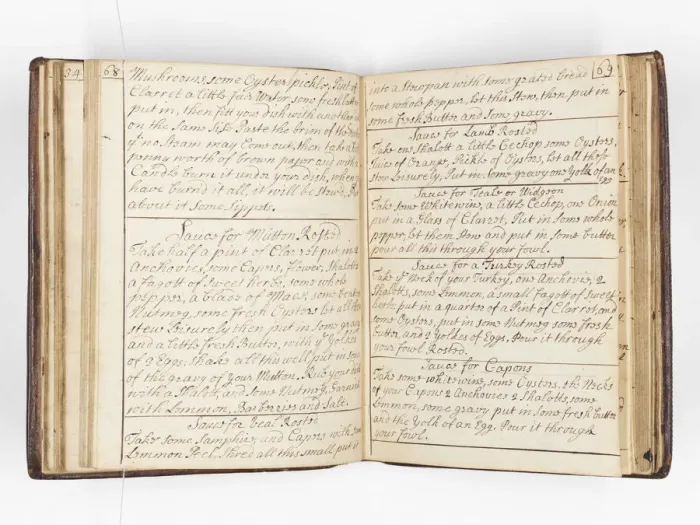 34
68
Mushrooms, some Oyster pickle, Pint of
Clarret a little fair Water, some fresh butter
put in, then fitt your dish with another
on the same Side Paste the brim of the
no steam may Come out, then take a
penny worth of brown paper and with a
Candle burn it under your dish, when
have burn'd it all, it will be stewd. Put
about it some Sippets.
Sauce for Mutton Rosted
Take half a pint of Clarrit put in 2
Anchovies, some Capers, flower, Shalots
a fagott of Sweet herbs, some whole
pepper, a blade of Mace, some beaten
Nutmeg, some fresh Oysters let all these
stew Leisurely then put in some gravy
and a little fresh Butter, with ye Yolkes
of 3 Eggs: shake all this well put in some
of the gravy of your Mutton. Rub your dish
with a Shalot, and some Nutmeg, Garnish
with Lemmon, Barberries and Salt.
Sauce for Veal Rosted
Take some Samphire and Capers with some
Lemmon Peel, Shred all this small put it
69
into a Stewpan with some grated bread
some whole pepper, let this Stew, then put in
some fresh Butter and Some gravy.
Sauce for Lamb Rosted
Take one Shalott a little Cechop, some Oysters,
Juice of Orange, Pickle of Oysters, let all these
stew Leisurely, Put in some gravy one Yolk of an
Sauce for Teale or Widgeon
Take some Whitewine, a little Cechop, one Onion
put in a Glass of Clarret, Put in some whole
pepper, let them Stew and put in some butter
pour all this through your fowl.
Sauce for a Turkey Rosted
Take ye Neck of your Turkey, one Anchovie, 2
Shalotts, some Lemmon, a small fagott of Sweet
herbs, put in a quarter of a Pint of Clarrot, and
some Oysters, put in some Nutmeg some fresh
Butter, and 2 Yolkes of Eggs, Pour it through
your fowl Rosted.
Sauce for Capons
Take some whitewine, some Oysters, the Necks
of your Capons 2 Anchovies 2 Shalotts, some
Lemmon, some gravy put in some fresh butter
and the Yolk of an Egg. Pour it through
your fowl.